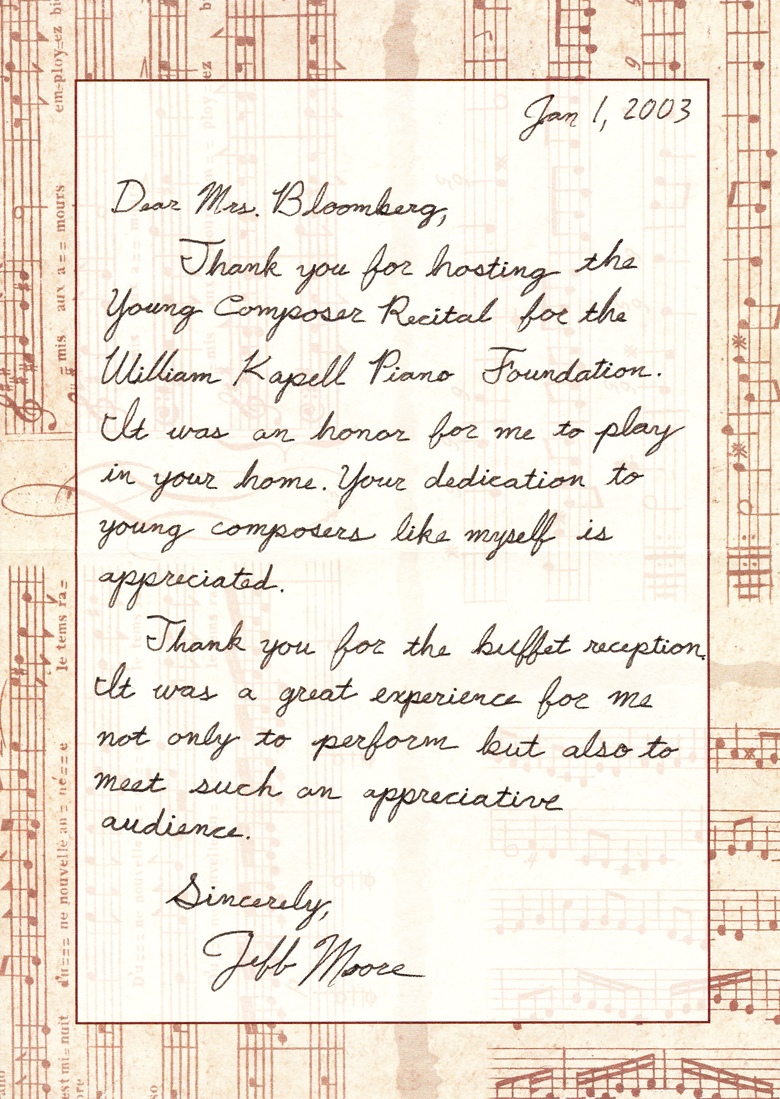 Jan 1, 2003
Dear Mrs. Bloomberg,
Thank you for hosting the
Young Composer Recital for the
William Kapell Piano Foundation.
It was an honor for me to play
in your home. Your dedication to
young composers like myself is
appreciated.
Thank you for the buffet reception.
It was a great experience for me
not only to perform but also to
meet such an appreciative
audience.
Sincerely,
Jeff Moore
em=ploy=ez
ez
aux a== mours
= mis
le tems ra=
d'u=== ne nouvelle an= né===e
est mi= nuit